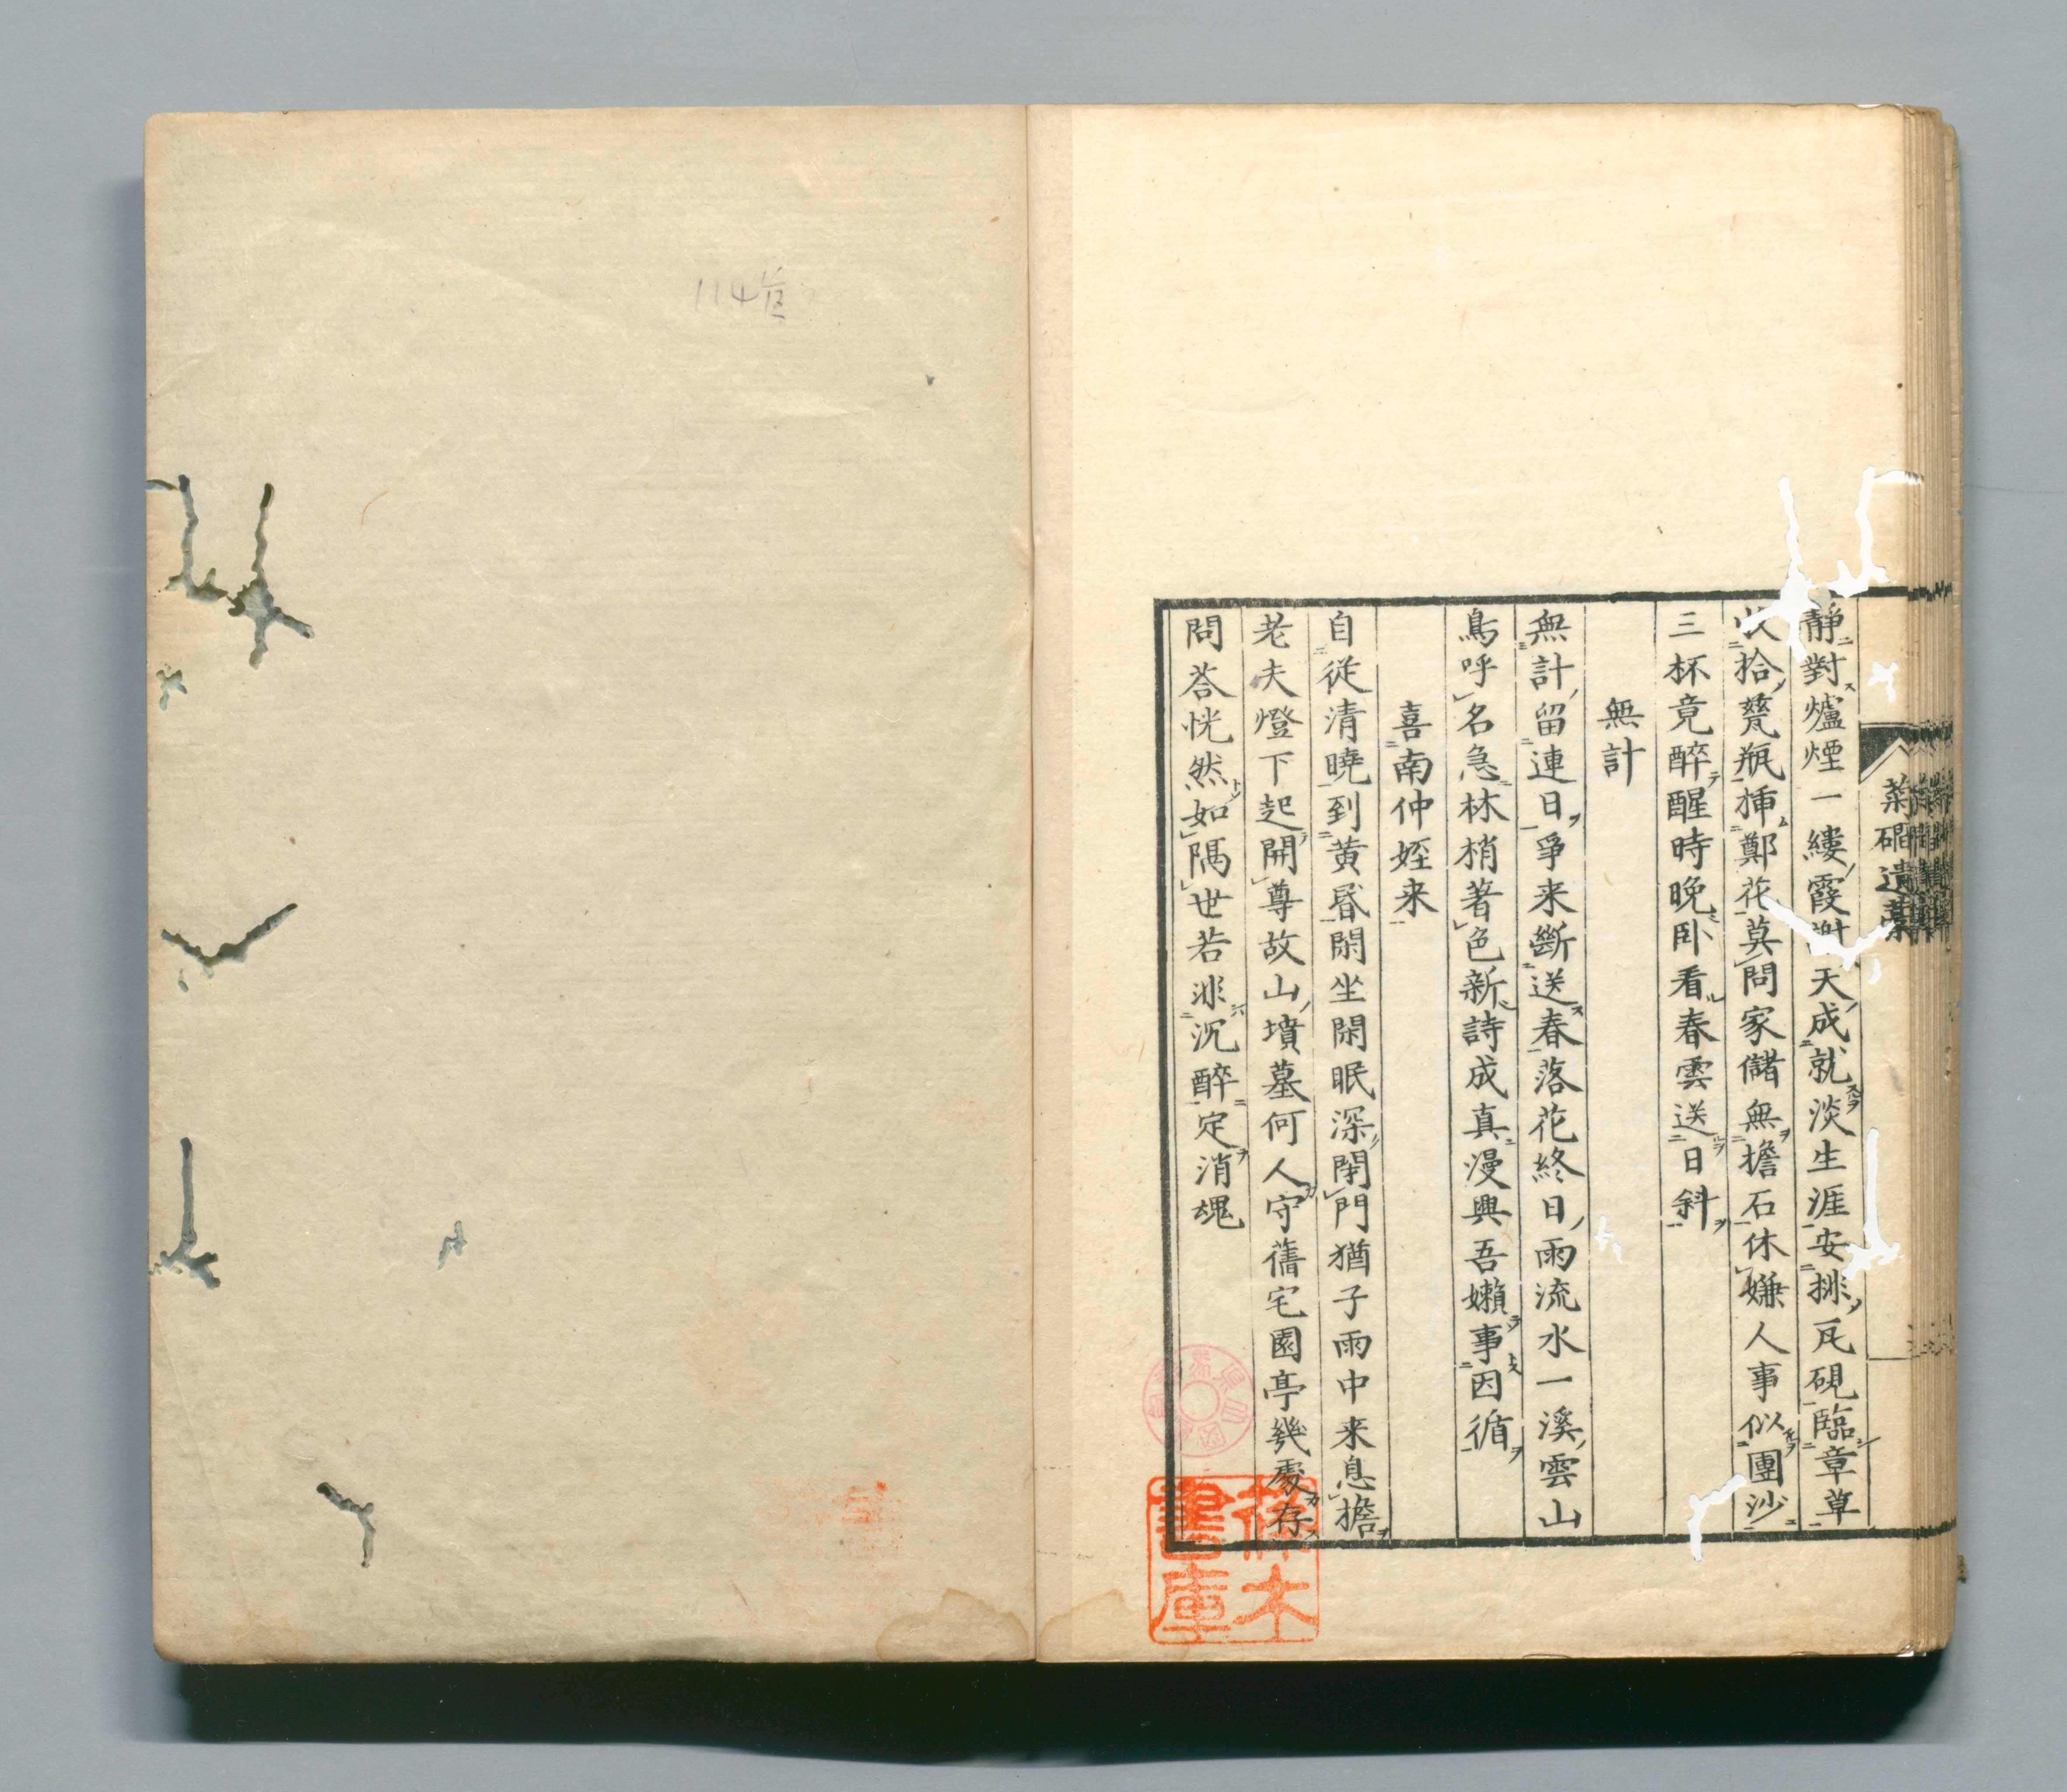 菜磵遺藁
静對爐煙一縷霞謝天成就淡生涯安排瓦硯臨章草
收拾甆瓶揷鄭花莫問家儲無擔石休嫌人事似團沙
三杯竟醉醒時晚臥看春雲送日斜
無計
無計留連日爭来斷送春落花終日雨流水一溪雲山
鳥呼名急林梢著色新詩成真漫興吾嬾事因循
喜南仲姪来
自從清曉到黄昬閑坐閑眠深閉門猶子雨中来息擔
老夫燈下起開尊故山墳墓何人守舊宅園亭幾處存
問荅恍然如隔世若非沉醉定消魂
篠木
書庫
114